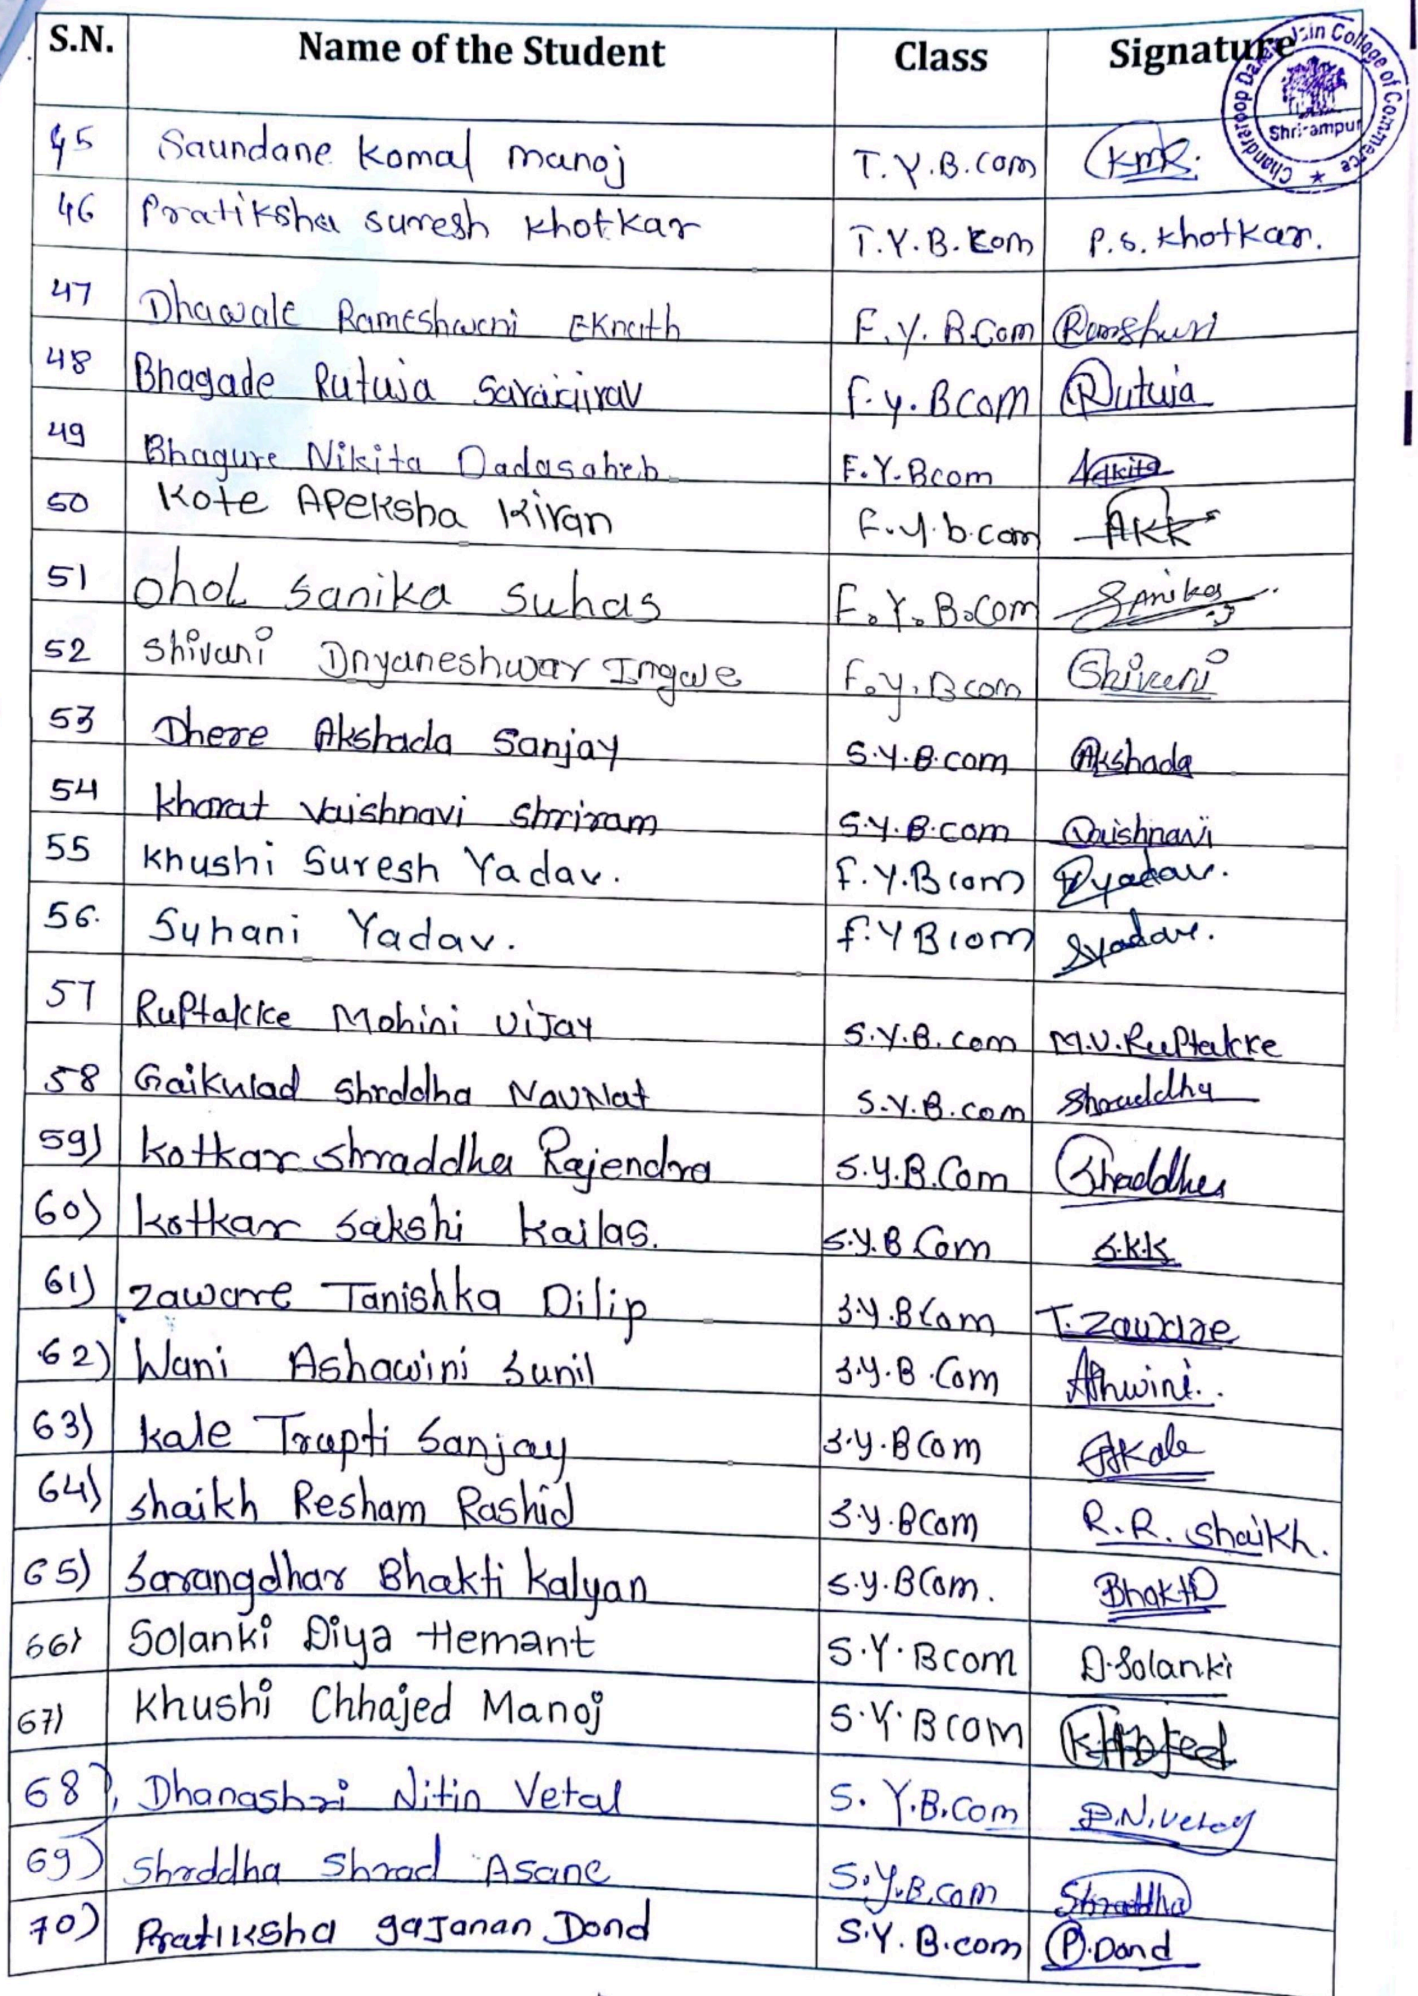 S.N. Name of the Student Class Signature
Chandraroop Jain College of Commerce ★
Shrirampur
45 Saundane Komal Manoj T.Y.B.Com KMR.
46 Pratiksha Suresh Khotkar T.Y.B.Com P.S.Khotkar.
47 Dhawale Rameshwari Eknath F.Y.B.Com
48 Bhagade Rutuja F.y.BCom Rutuja
49 Bhagure Nikita Dadasaheb F.Y.Bcom Nikita
50 Kote Apeksha Kiran F.y.b.com AKK
51 Ohol Sanika Suhas F.Y.B.Com Sanika
52 Shivani Dnyaneshwar Ingwe F.y.Bcom Shivani
53 Dhere Akshada Sanjay S.Y.B.com Akshada
54 Kharat Vaishnavi Shriram S.Y.B.com Vaishnavi
55 Khushi Suresh Yadav. F.Y.Bcom yadav.
56. Suhani Yadav. F.Y Bcom Syadav.
57 Ruptakke Mohini Vijay S.Y.B.com M.V.Ruptakke
58 Gaikwad Shrddha NavNat S.Y.B.com Shraddha
59) Kotkar Shraddha Rajendra S.Y.B.Com Shraddha
60) Kotkar Sakshi Kailas. S.Y.B.Com S.K.K
61) Zaware Tanishka Dilip S.Y.BCom T.Zaware
62) Wani Ashawini Sunil S.Y.B.Com Ashwini.
63) Kale Trupti Sanjay S.Y.BCom Kale
64) Shaikh Resham Rashid S.Y.BCom R.R.Shaikh.
65) Sarangdhar Bhakti Kalyan S.y.BCom. Bhakti
66) Solanki Diya Hemant S.Y.Bcom D.Solanki
67) Khushi Chhajed Manoj S.Y.Bcom
68), Dhanashri Nitin Vetal S.Y.B.Com D.N.Vetal
69) Shrddha Shrad Asane S.Y.B.com Shraddha
70) Pratiksha gajanan Dond S.Y.B.com P.Dond